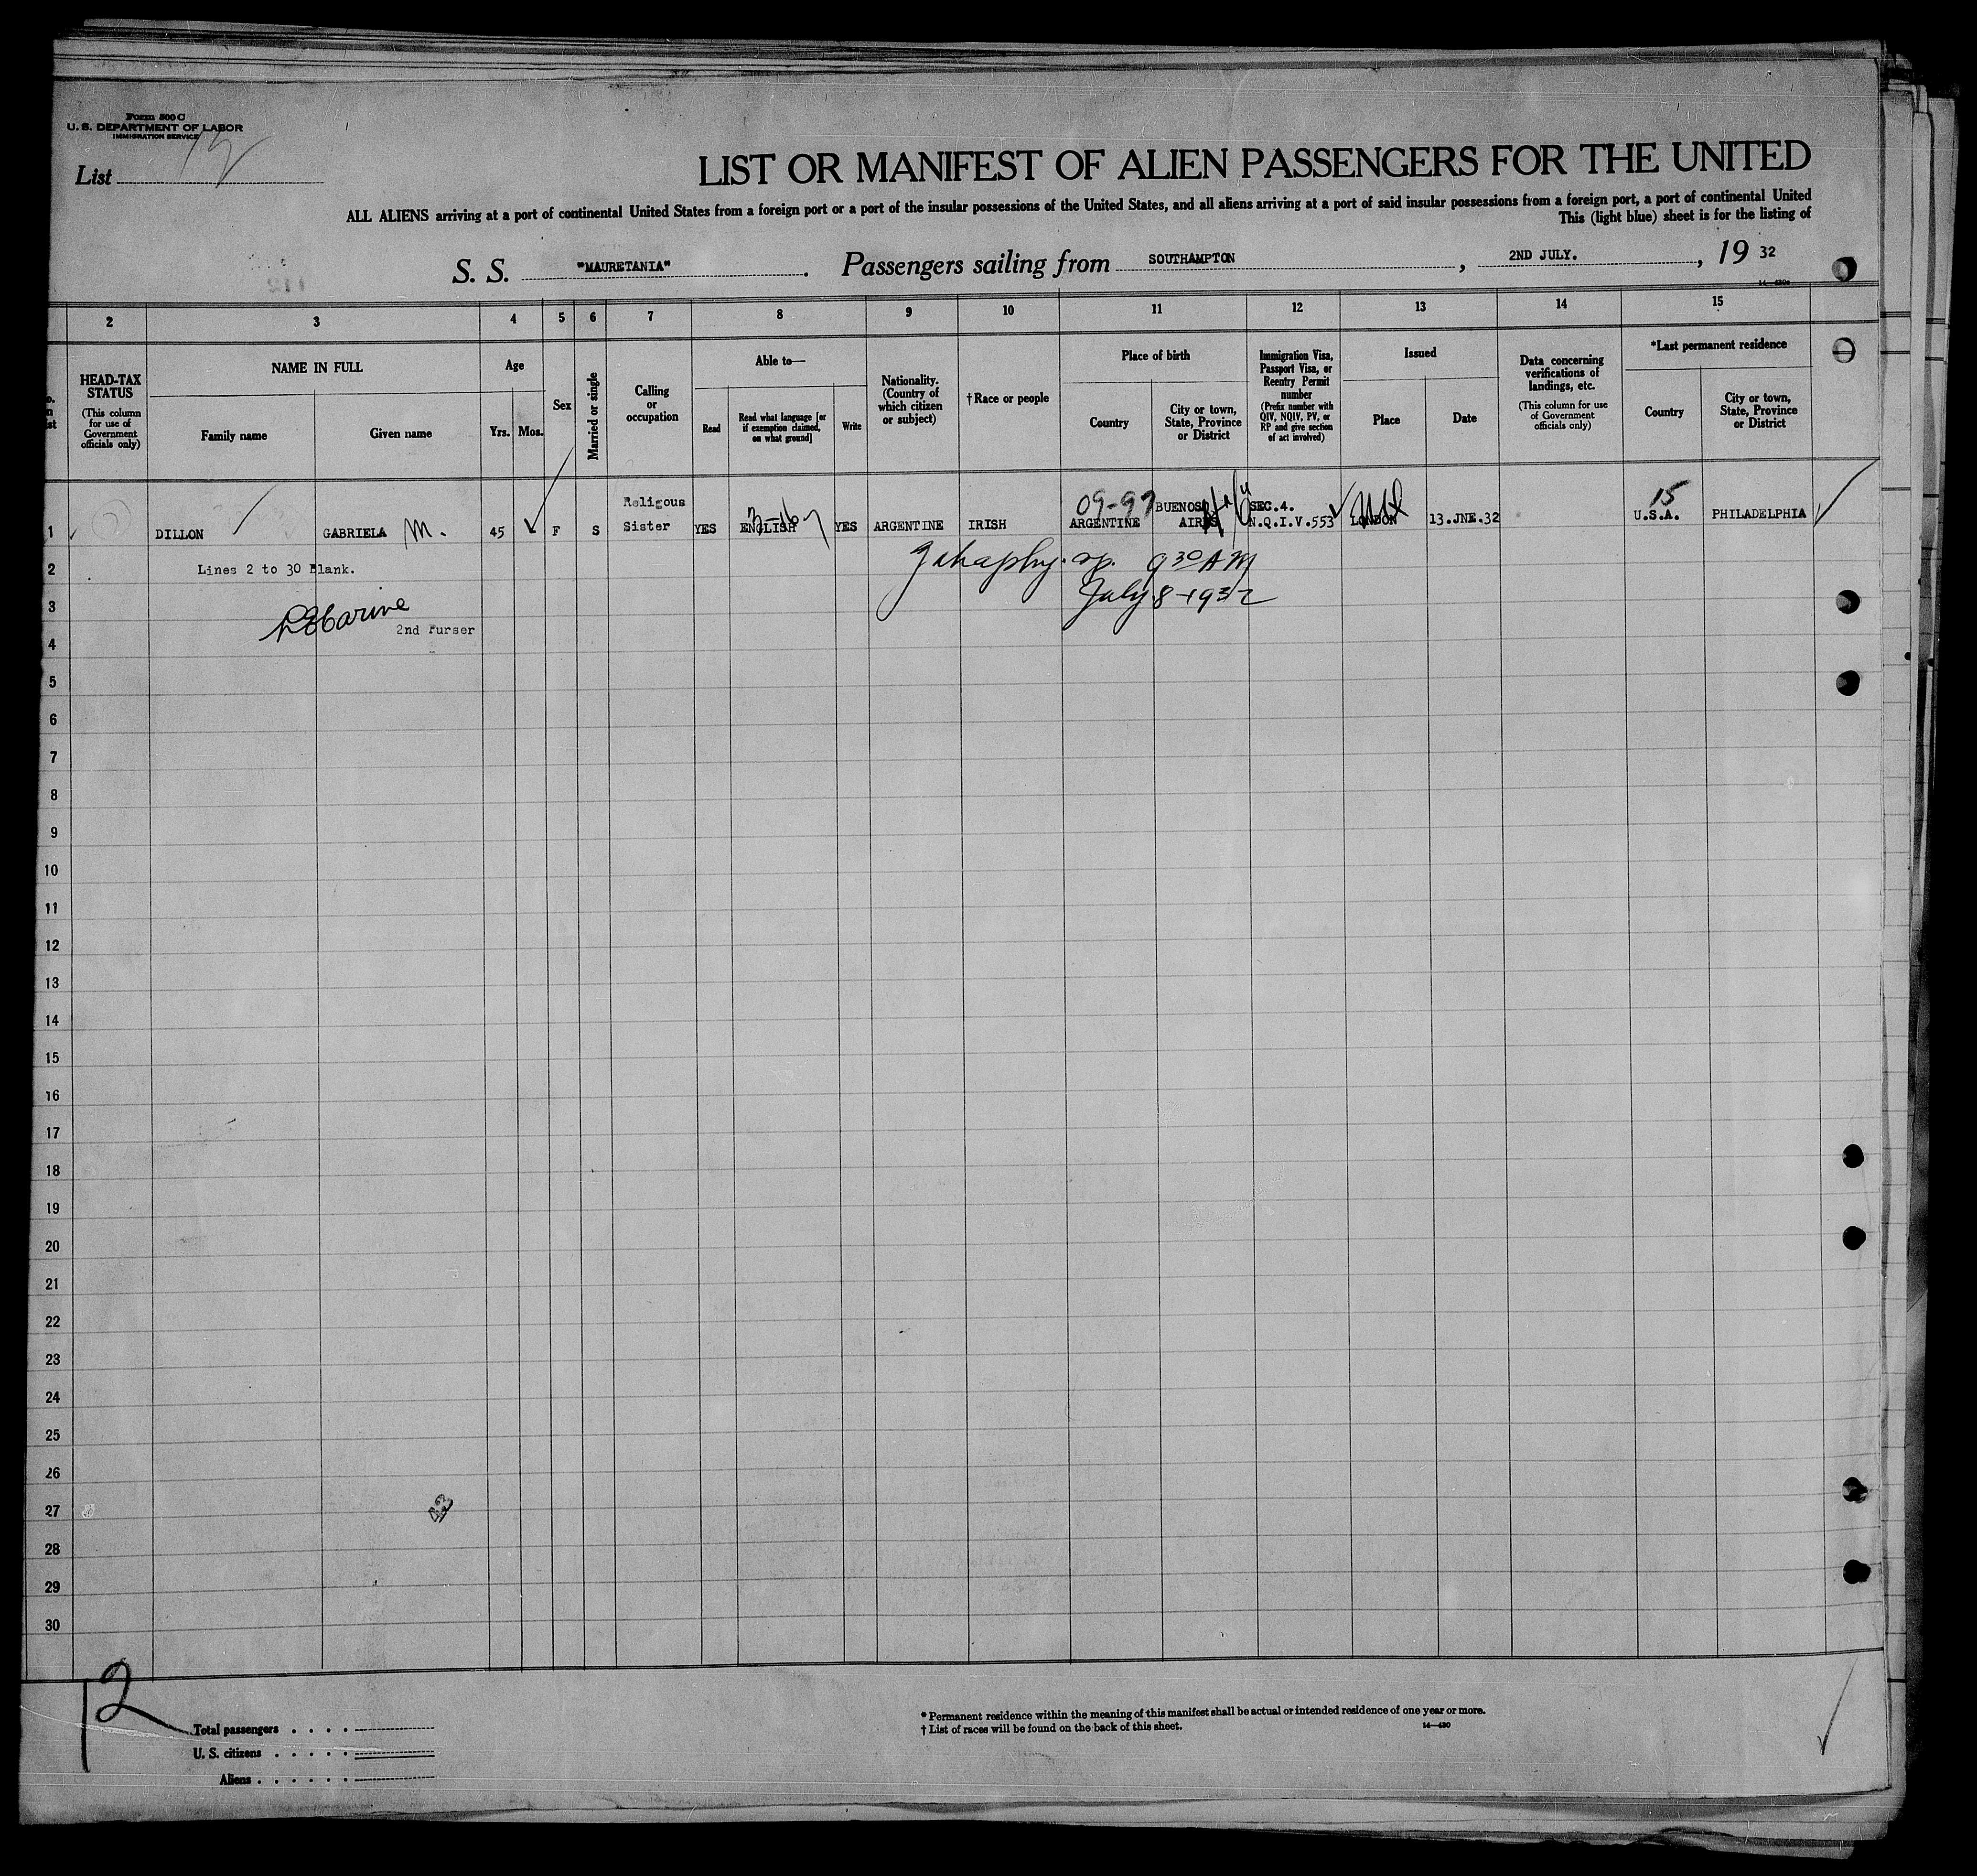 Form 500 C
U. S. DEPARTMENT OF LABOR
IMMIGRATION SERVICE
List
LIST OR MANIFEST OF ALIEN PASSENGERS FOR THE UNITED
ALL ALIENS arriving at a port of continental United States from a foreign port or a port of the insular possessions of the United States, and all aliens arriving at a port of said insular possessions from a foreign port, a port of continental United
This (light blue) sheet is for the listing of
S. S. "MAURETANIA". Passengers sailing from SOUTHAMPTON, 2ND JULY., 19 32
2 3 4 5 6 7 8 9 10 11 12 13 14 15
HEAD-TAX STATUS (This column for use of Government officials only)
NAME IN FULL
Family name
Given name
Age
Yrs. Mos.
Sex
Married or single
Calling or occupation
Able to—
Read
Read what language [or if exemption claimed, on what ground]
Write
Nationality. (Country of which citizen or subject)
†Race or people
Place of birth
Country
City or town, State, Province or District
Immigration Visa, Passport Visa, or Reentry Permit number (Prefix number with QIV, NQIV, PV, or RP and give section of act involved)
Issued
Place
Date
Data concerning verifications of landings, etc. (This column for use of Government officials only)
*Last permanent residence
Country
City or town, State, Province or District
1 DILLON GABRIELA M. 45 F S Religous Sister YES ENGLISH YES ARGENTINE IRISH 09-97 ARGENTINE BUENOS AIRES SEC.4. N.Q.I.V.553 LONDON 13.JNE.32 15 U.S.A. PHILADELPHIA
2 Lines 2 to 30 Blank. 9 30 AM
3 July 8-1932
2nd Purser
4
5
6
7
8
9
10
11
12
13
14
15
16
17
18
19
20
21
22
23
24
25
26
27
28
29
30
12
Total passengers
U. S. citizens
Aliens
* Permanent residence within the meaning of this manifest shall be actual or intended residence of one year or more.
† List of races will be found on the back of this sheet.
14—430